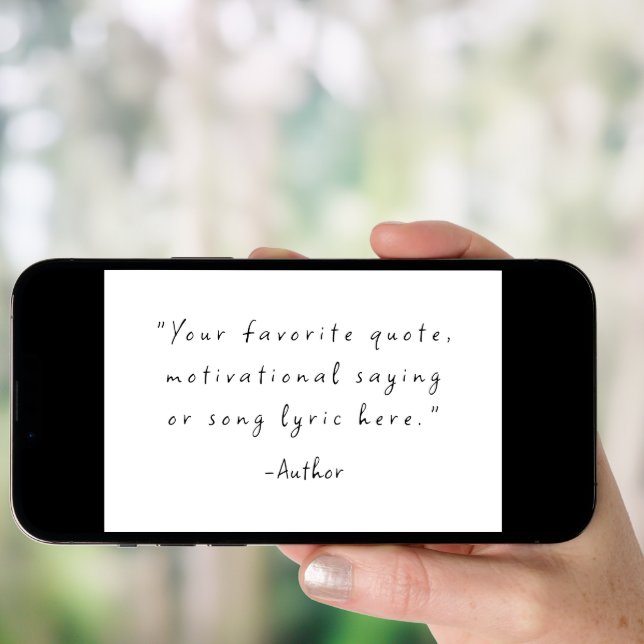 "Your favorite quote,
motivational saying
or song lyric here."
-Author